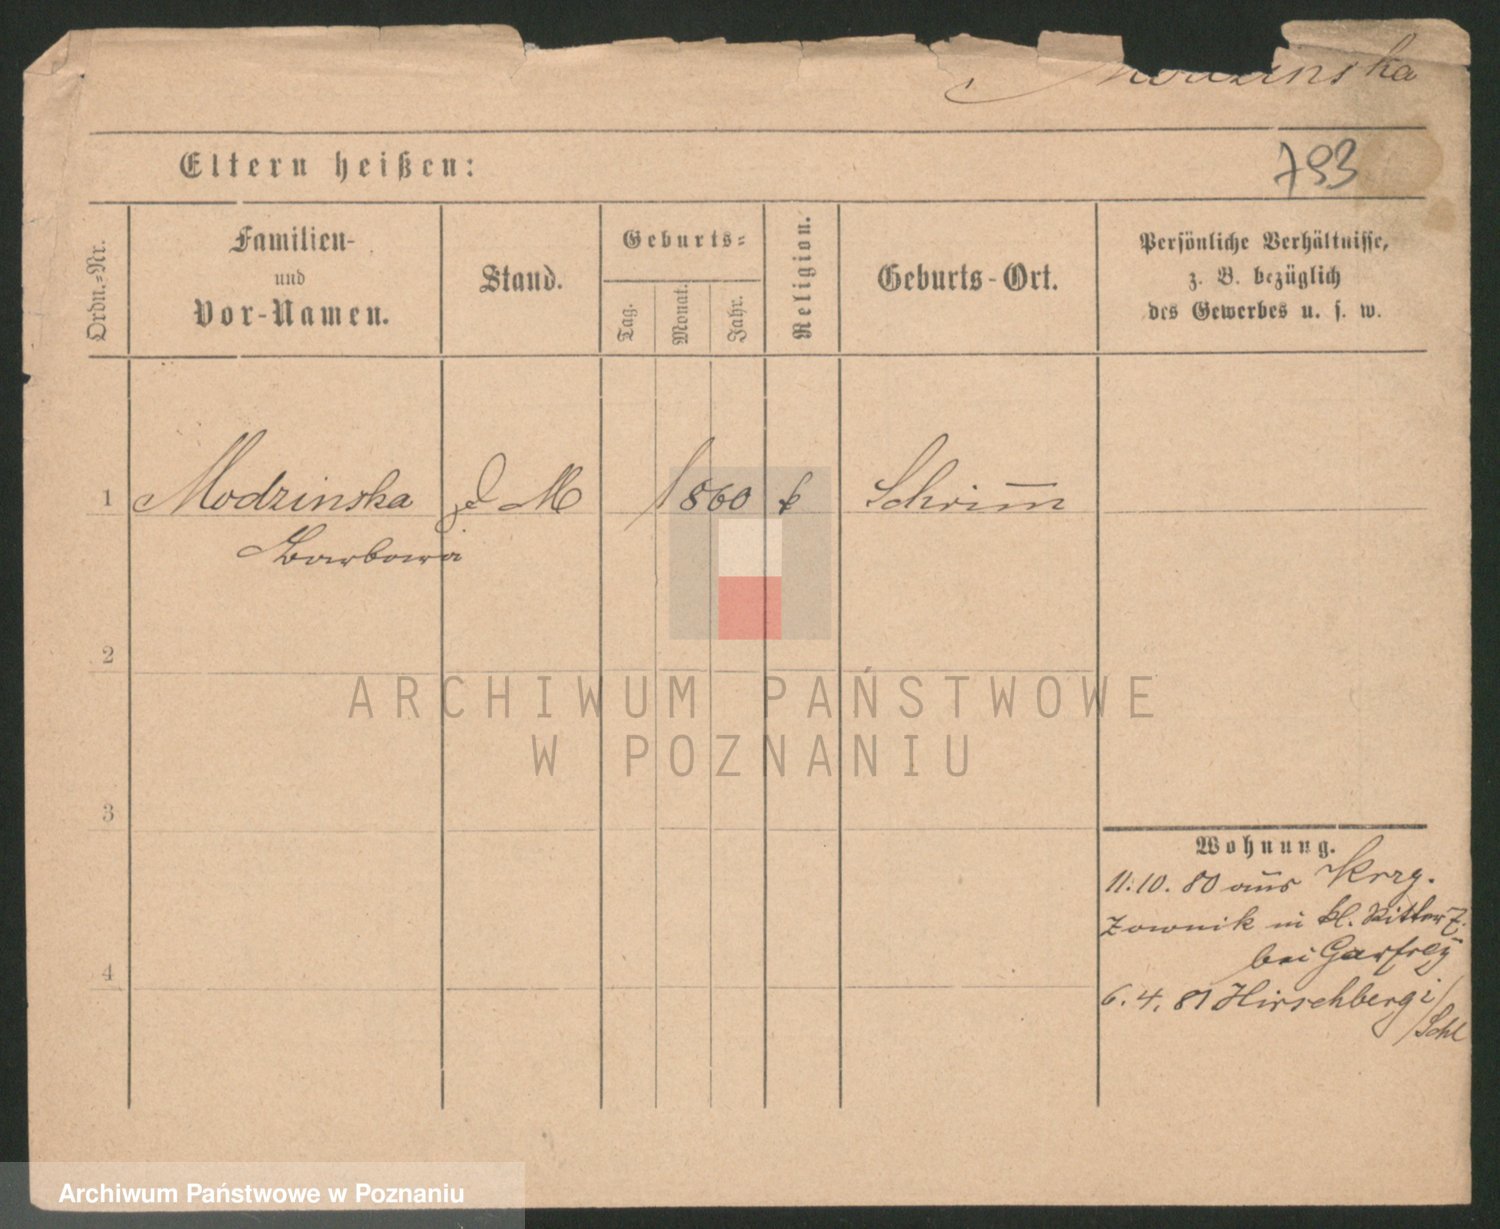 Modzinska
Eltern heißen:
793
Ordn.-Nr.
Familien-
und
Vor-Namen.
Stand.
Geburts-
Tag.
Monat.
Jahr.
Religion.
Geburts-Ort.
Persönliche Verhältnisse,
z. B. bezüglich
des Gewerbes u. s. w.
1 Modzinska d M 1860 k Schrimm
Barbara
2
3
4
Wohnung.
11.10.80 aus Krzy.
zownik in kl. Ritter
bei
6.4.81 Hirschberg i/
Schl
ARCHIWUM PAŃSTWOWE
W POZNANIU
Archiwum Państwowe w Poznaniu